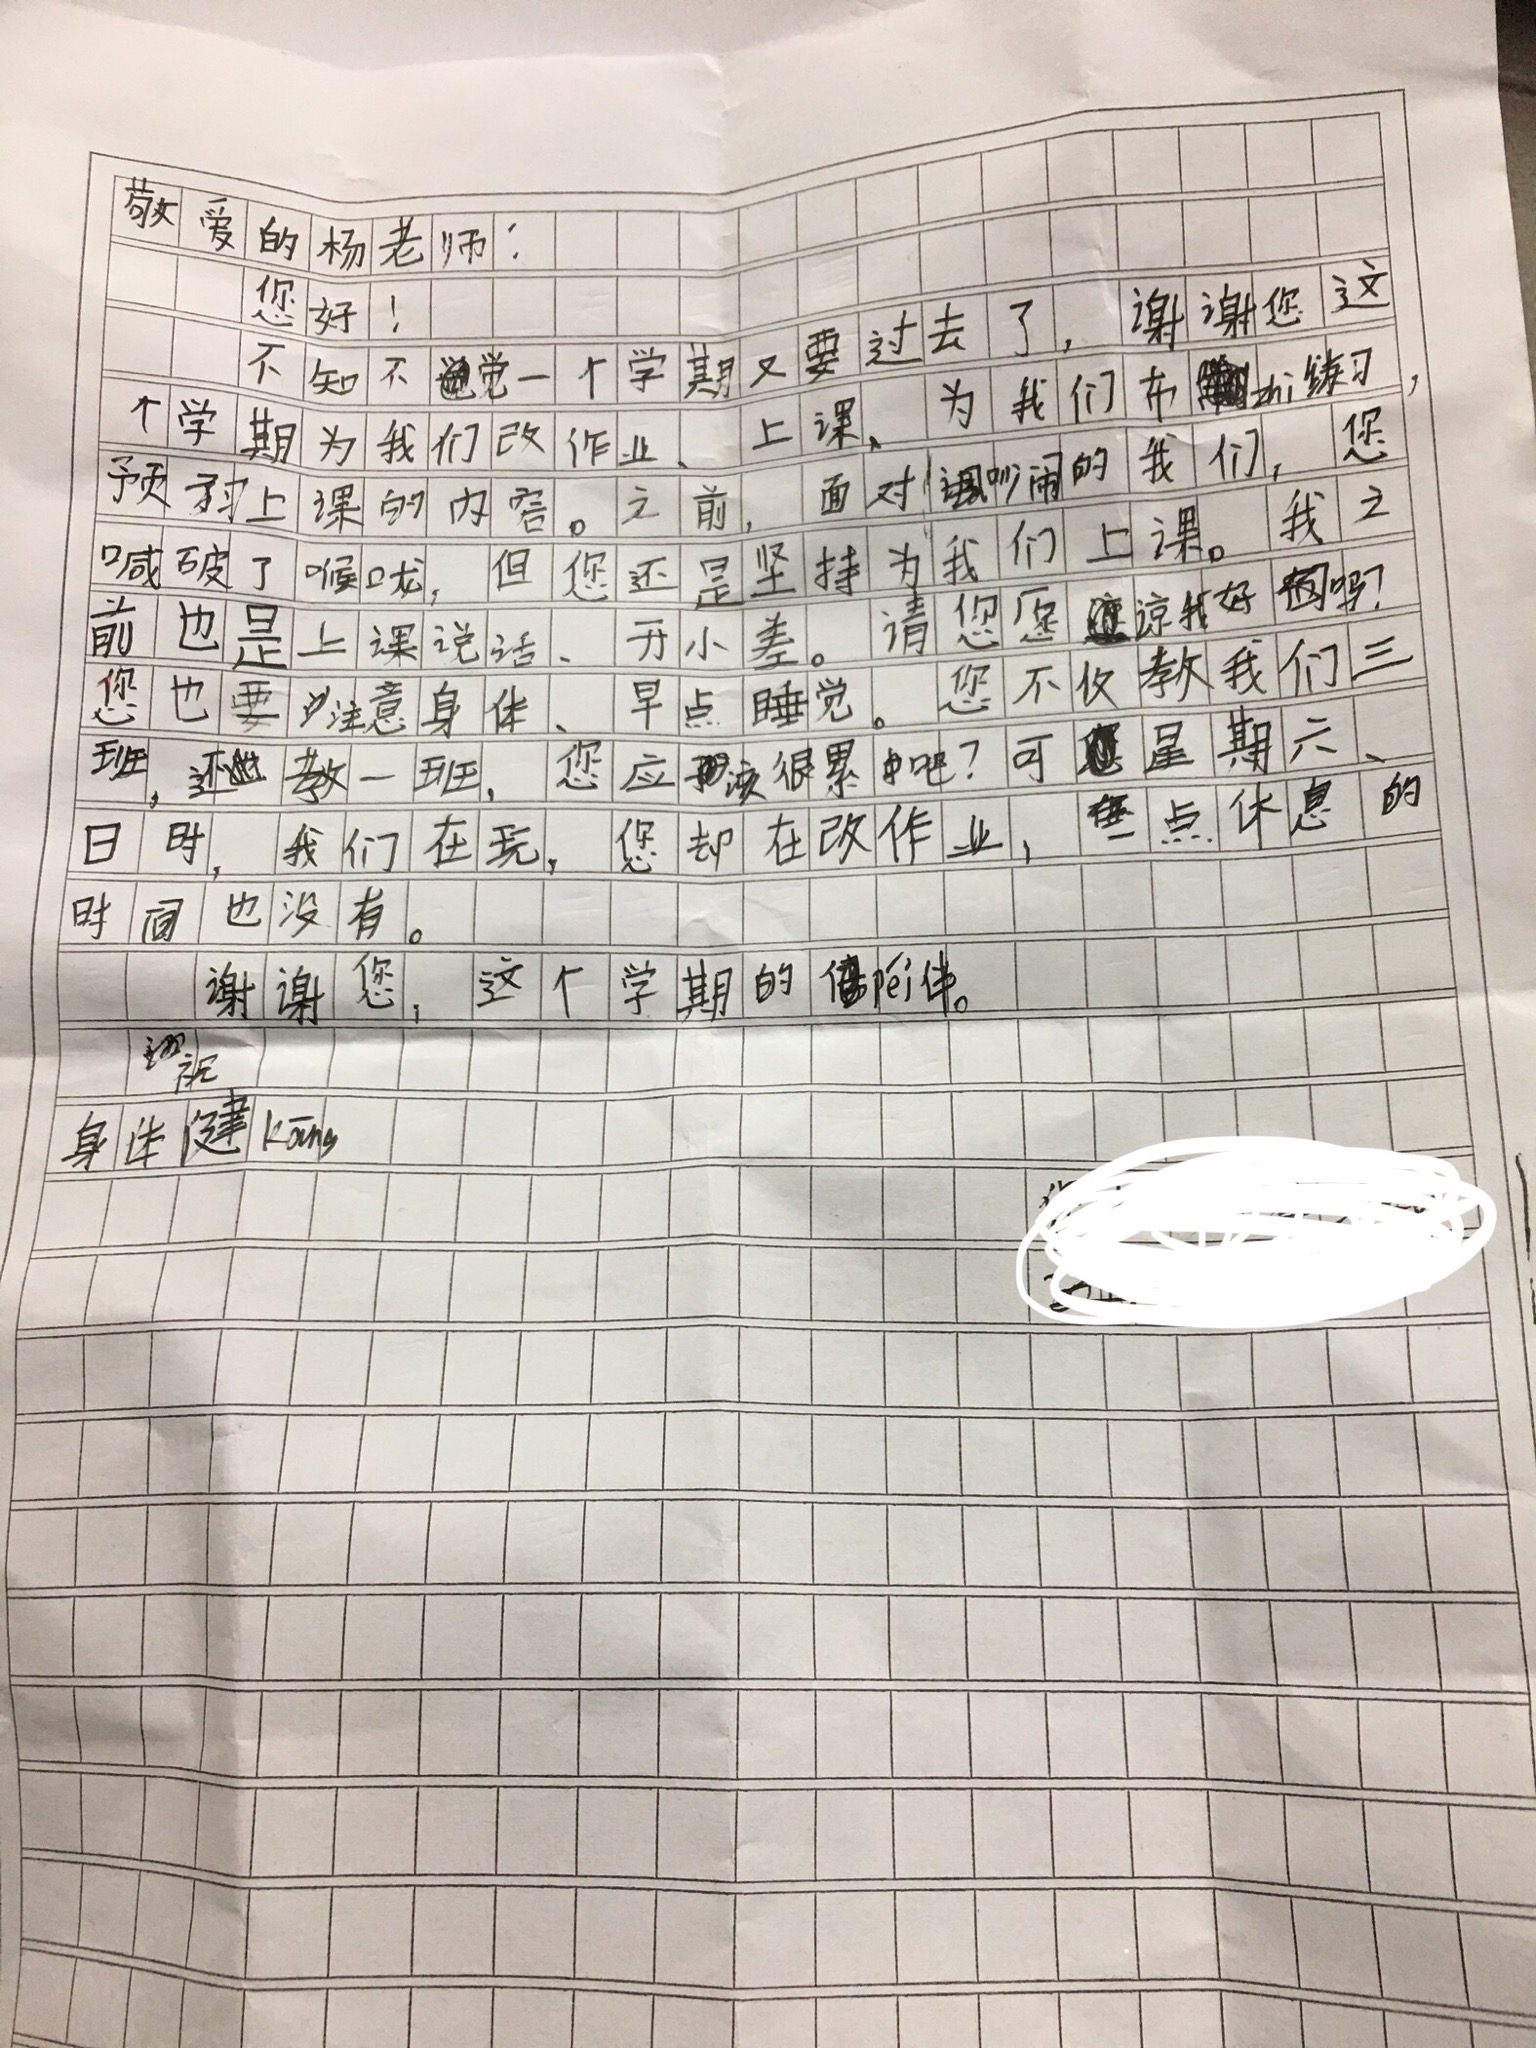 敬爱的杨老师：
您好！
不知不觉一个学期又要过去了，谢谢您这
个学期为我们改作业、上课、为我们布zhi练习，
预习上课的内容。之前，面对吵闹的我们，您
喊破了喉咙，但您还是坚持为我们上课。我之
前也是上课说话、开小差。请您原谅我好吗？
您也要注意身体、早点睡觉。您不仅教我们三
班，还教一班，您应该很累吧？可星期六、
日时，我们在玩，您却在改作业，一点休息的
时间也没有。
谢谢您，这个学期的pei伴。
祝
身体健kāng